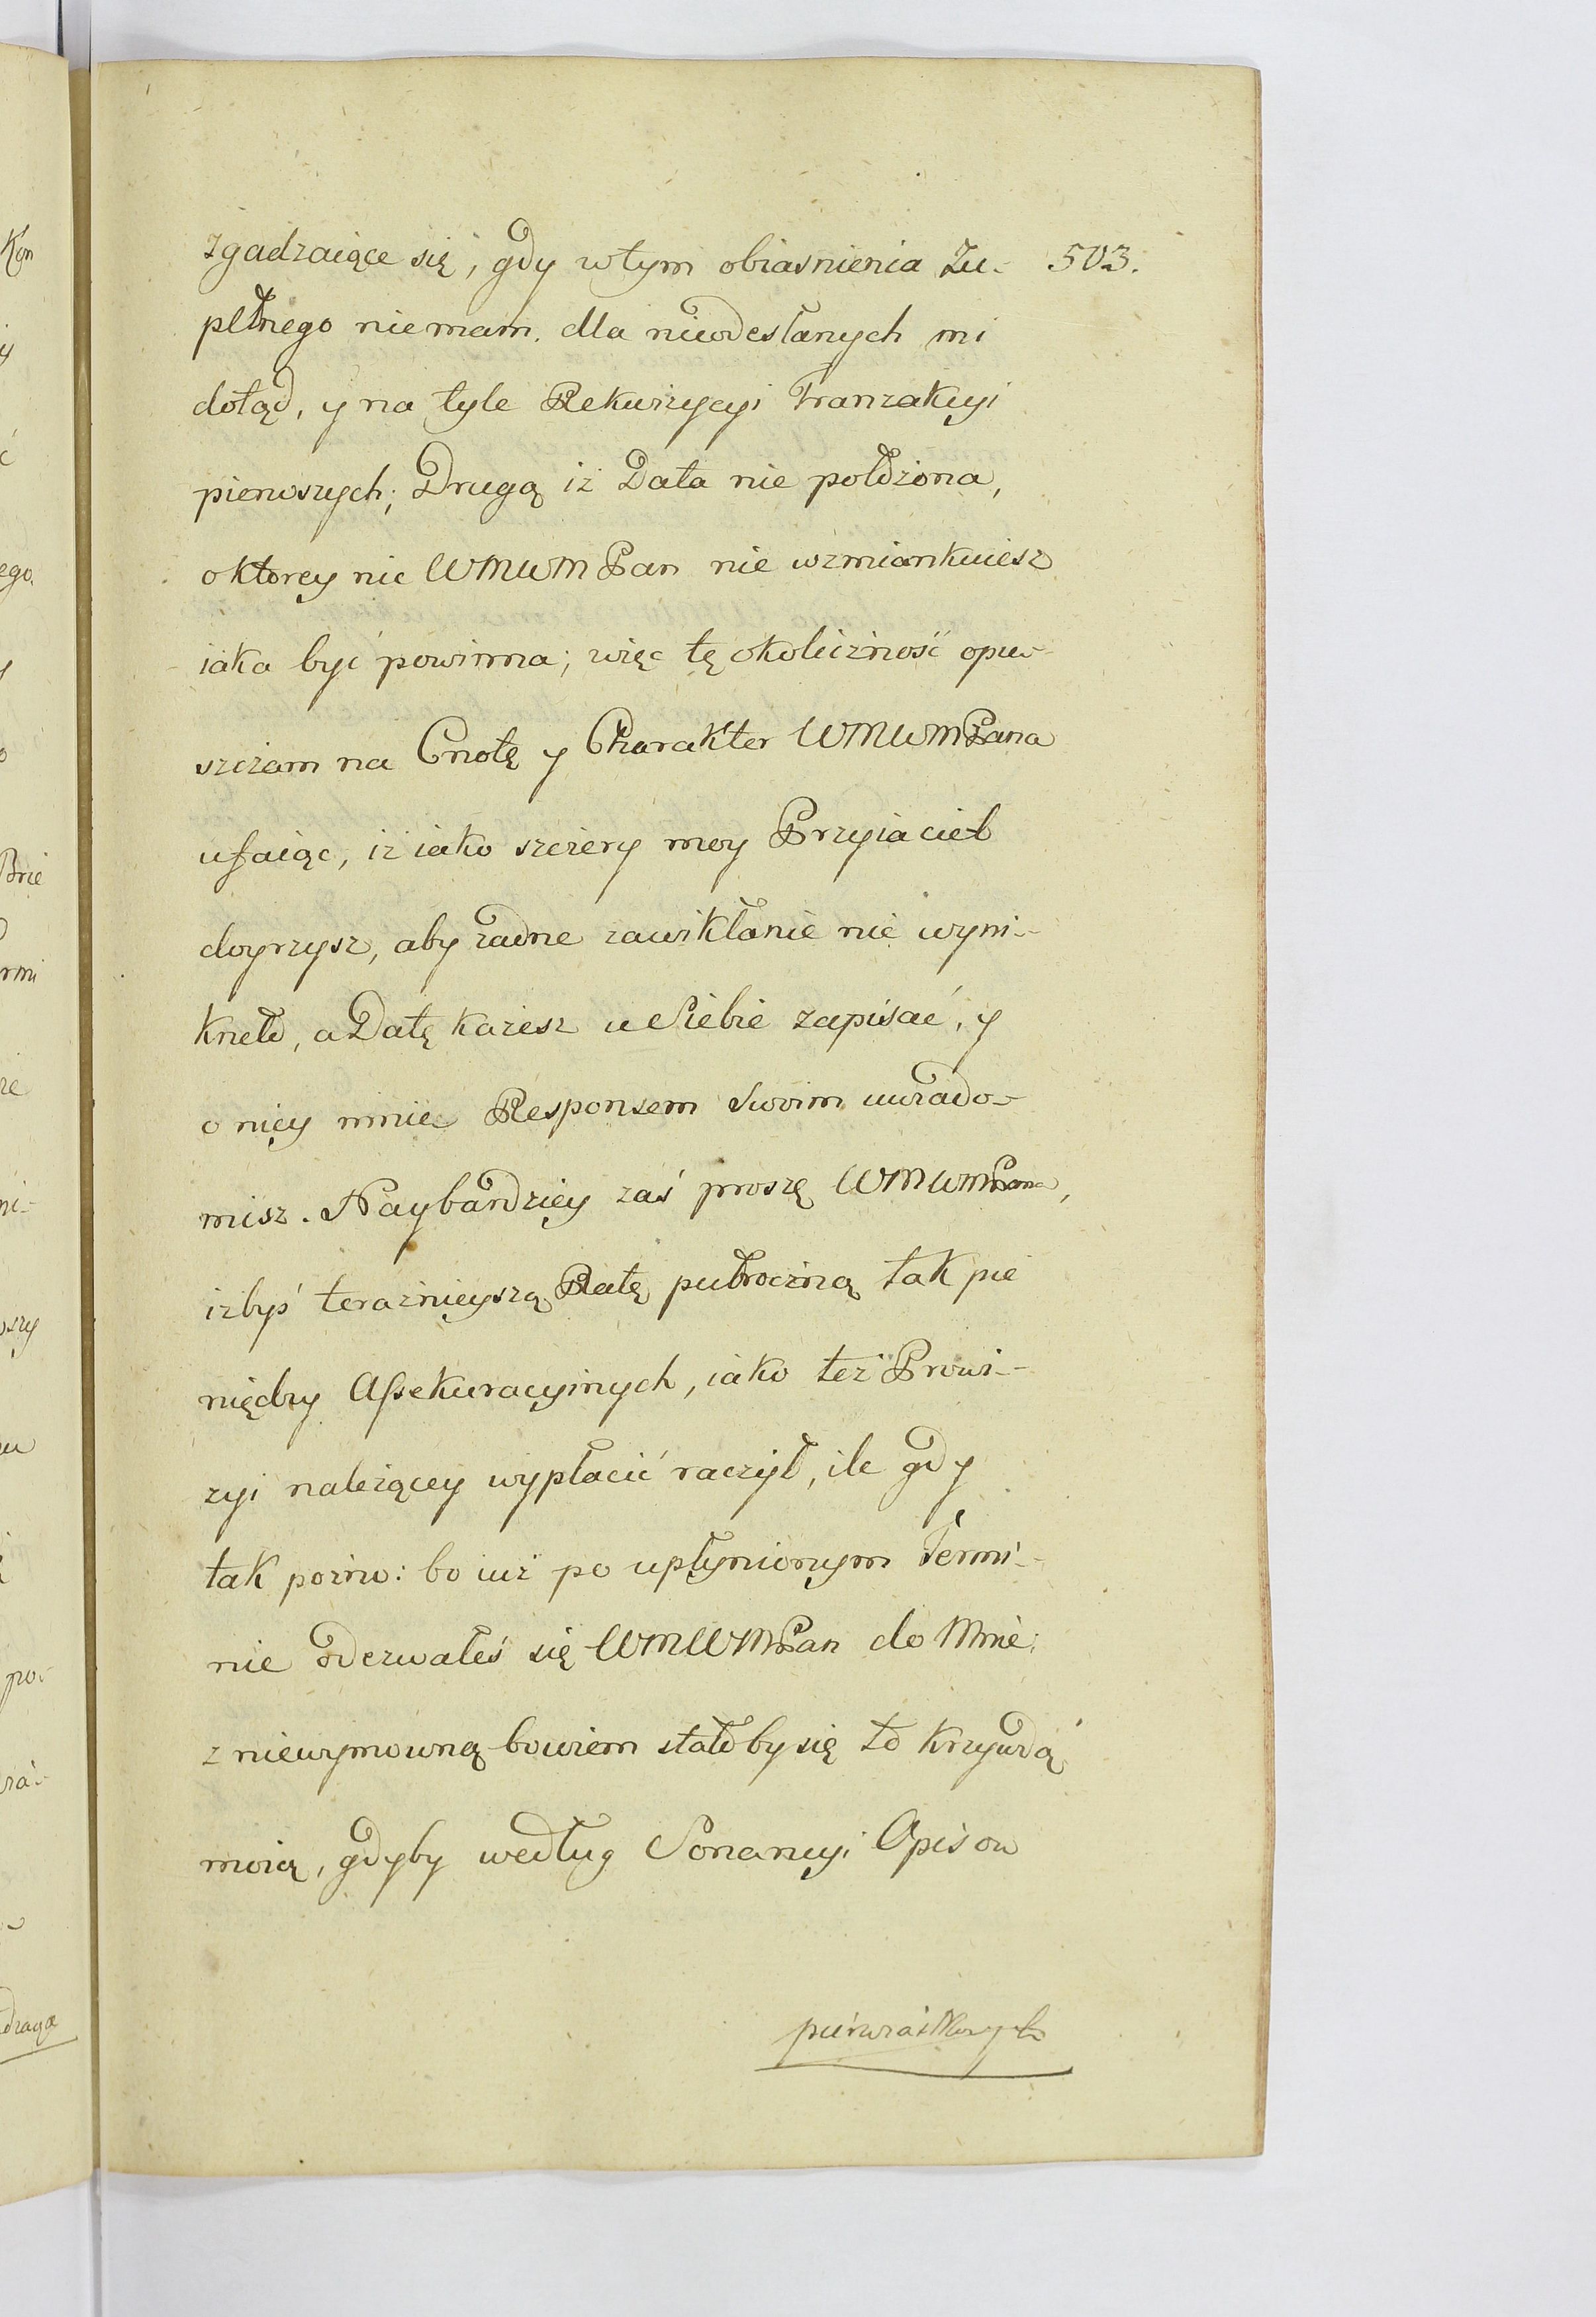 zgadzaiące się, gdy w tym obiasnienia Zu- 503.
pełnego nie mam. dla nieodesłanych mi
dotąd, y na tyle Rekwizycyi Tranzakcyi
pierwszych; Drugą iż Data nie położona,
o ktorey nic WMWMPan nie wzmiankuiesz
iaka być powinna; więc tę okoliczność opu-
szczam na Cnotę y Charakter WMWMPana
ufaiąc, iz iako szczery moy Przyiaciel
doyrzysz, aby zadne zawikłanie nie wyni-
kneło, a Datę kazesz u Siebie zapisać, y
o nięy mnie Responsem Swoim uwiado-
misz. Naybardzięy zaś proszę WMWMPana,
izbyś teraznięyszą Ratę pułroczną tak pie
niędzy Assekuracyinych, iako też Prowi-
zyi należącey wypłacić raczył, ile gdy
tak pozno: bo iuż po upłynionym Termi-
nie odezwałeś się WMWMPan do Mnie:
z niewymowną bowiem stałoby się to krzywdą
moią, gdyby według Sonancyi Opisow
pierwiastkowych
Kon
ego.
Brie
rmi
ze
ni-
wszy
po-
draga